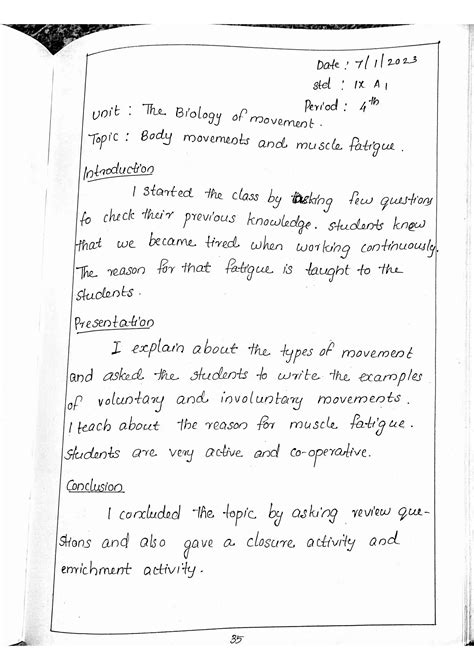 Date : 7/1/2023
std : IX A1
Period : 4th
Unit : The Biology of movement.
Topic : Body movements and muscle fatigue.
Introduction
I started the class by asking few questions
to check their previous knowledge. students know
that we became tired when working continuously.
The reason for that fatigue is taught to the
students.
Presentation
I explain about the types of movement
and asked the students to write the examples
of voluntary and involuntary movements.
I teach about the reason for muscle fatigue.
students are very active and co-operative.
Conclusion
I concluded the topic by asking review que-
stions and also gave a closure activity and
enrichment activity.
35